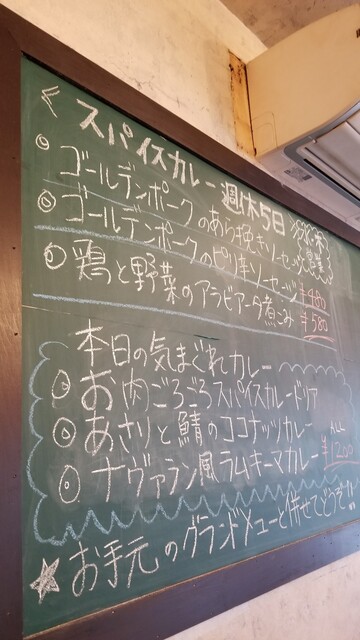 スパイスカレー 週休5日
◎ ゴールデンポークのあら挽きソーセージ
◎ ゴールデンポークのピリ辛ソーセージ ¥480
◎ 鶏と野菜のアラビアータ煮こみ ¥580
本日の気まぐれカレー
◎ お肉ごろごろスパイスカレードリア
◎ あさりと鯖のココナッツカレー ALL
◎ ナヴァラン風ラムキーマカレー ¥1200
☆ お手元のグランドメニューと併せてどうぞ!!